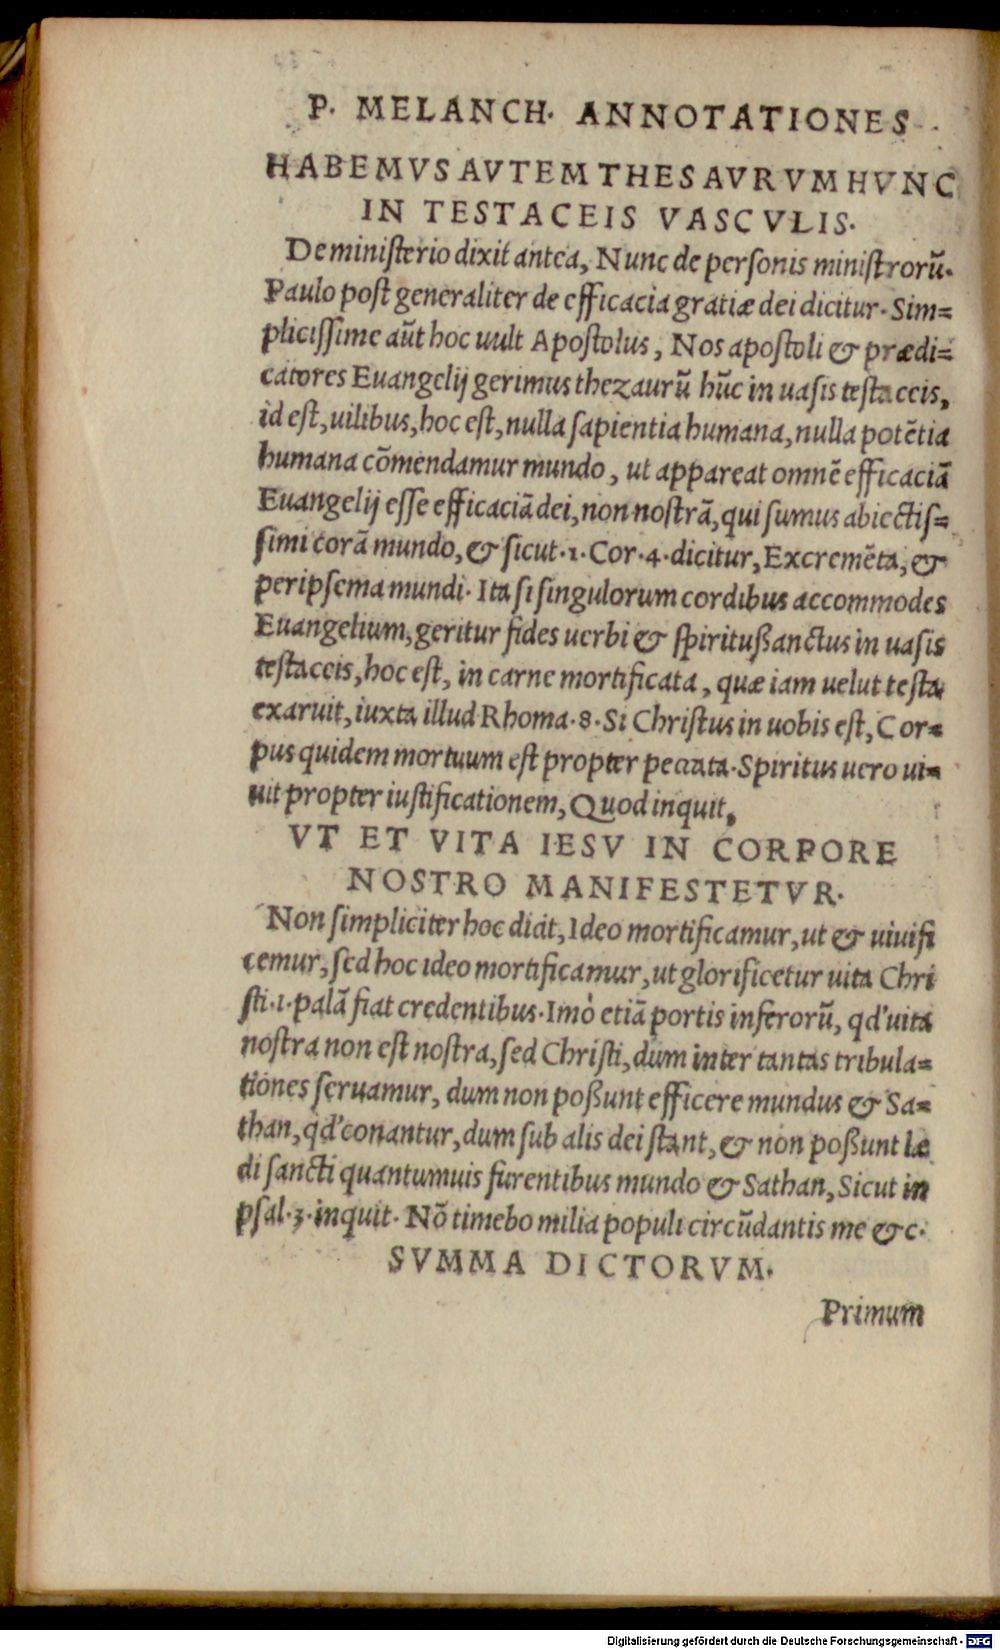 P. MELANCH. ANNOTATIONES
HABEMVS AVTEM THESAVRVM HVNC
IN TESTACEIS VASCVLIS.
De ministerio dixit antea, Nunc de personis ministrorũ.
Paulo post generaliter de efficacia gratiæ dei dicitur. Sim=
plicissime aũt hoc uult Apostolus, Nos apostoli & prædi=
catores Euangelij gerimus thezaurũ hũc in uasis testaceis,
id est, uilibus, hoc est, nulla sapientia humana, nulla potẽtia
humana cõmendamur mundo, ut appareat omnẽ efficaciã
Euangelij esse efficaciã dei, non nostrã, qui sumus abiectis=
simi corã mundo, & sicut .1. Cor. 4. dicitur, Excremẽta, &
peripsema mundi. Ita si singulorum cordibus accommodes
Euangelium, geritur fides uerbi & spiritußanctus in uasis
testaceis, hoc est, in carne mortificata, quæ iam uelut testa
exaruit, iuxta illud Rhoma. 8. Si Christus in uobis est, Cor=
pus quidem mortuum est propter peccata. Spiritus uero ui=
uit propter iustificationem, Quod inquit,
VT ET VITA IESV IN CORPORE
NOSTRO MANIFESTETVR.
Non simpliciter hoc dicit, Ideo mortificamur, ut & uiuifi
cemur, sed hoc ideo mortificamur, ut glorificetur uita Chri
sti .i. palã fiat credentibus. Imò etiã portis inferorũ, qd' uita
nostra non est nostra, sed Christi, dum inter tantas tribula=
tiones seruamur, dum non poßunt efficere mundus & Sa=
than, qd' conantur, dum sub alis dei stant, & non poßunt læ
di sancti quantumuis furentibus mundo & Sathan, Sicut in
psal. 3. inquit. Nõ timebo milia populi circũdantis me &c.
SVMMA DICTORVM.
Primum
Digitalisierung gefördert durch die Deutsche Forschungsgemeinschaft - DFG